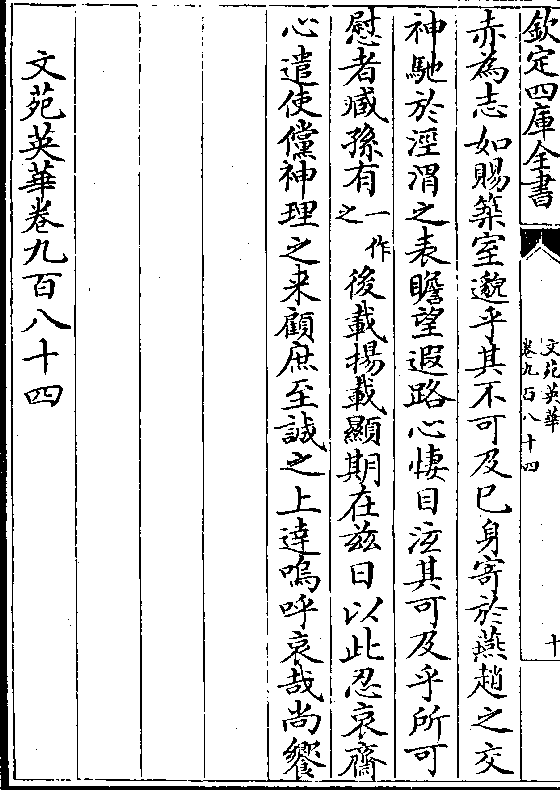 欽定四庫全書
文苑英華
卷九百八十四
十
赤為志如賜築室邈乎其不可及已身寄於燕趙之交
神馳於涇渭之表瞻望遐路心悽目泫其可及乎所可
慰者臧孫有一作之後載揚載顯期在兹日以此忍哀齋
心遣使儻神理之来顧庶至誠之上達嗚呼哀哉尚饗
文苑英華卷九百八十四